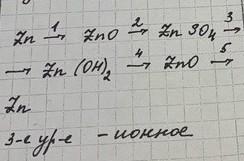 Zn →¹ ZnO →² ZnSO₄ →³
→ Zn(OH)₂ →⁴ ZnO →⁵
Zn
3-е ур-е - ионное